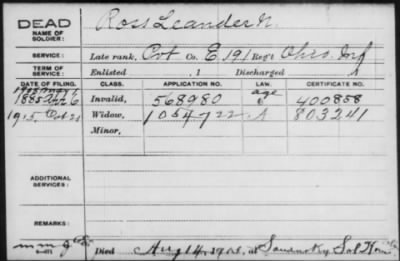 DEAD
NAME OF SOLDIER: Ross Leander N.
SERVICE: Late rank, Pvt Co. E, 191 Reg't Ohio Inf
TERM OF SERVICE: Enlisted , 1 Discharged , 1
DATE OF FILING. CLASS. APPLICATION NO. LAW. CERTIFICATE NO.
age
1885 6 Invalid, 568980 400858
1915, Oct 21 Widow, 1054722 A 803241
Minor,
ADDITIONAL SERVICES:
REMARKS:
Died Aug 14, 1915, at Sandusky Sol Home